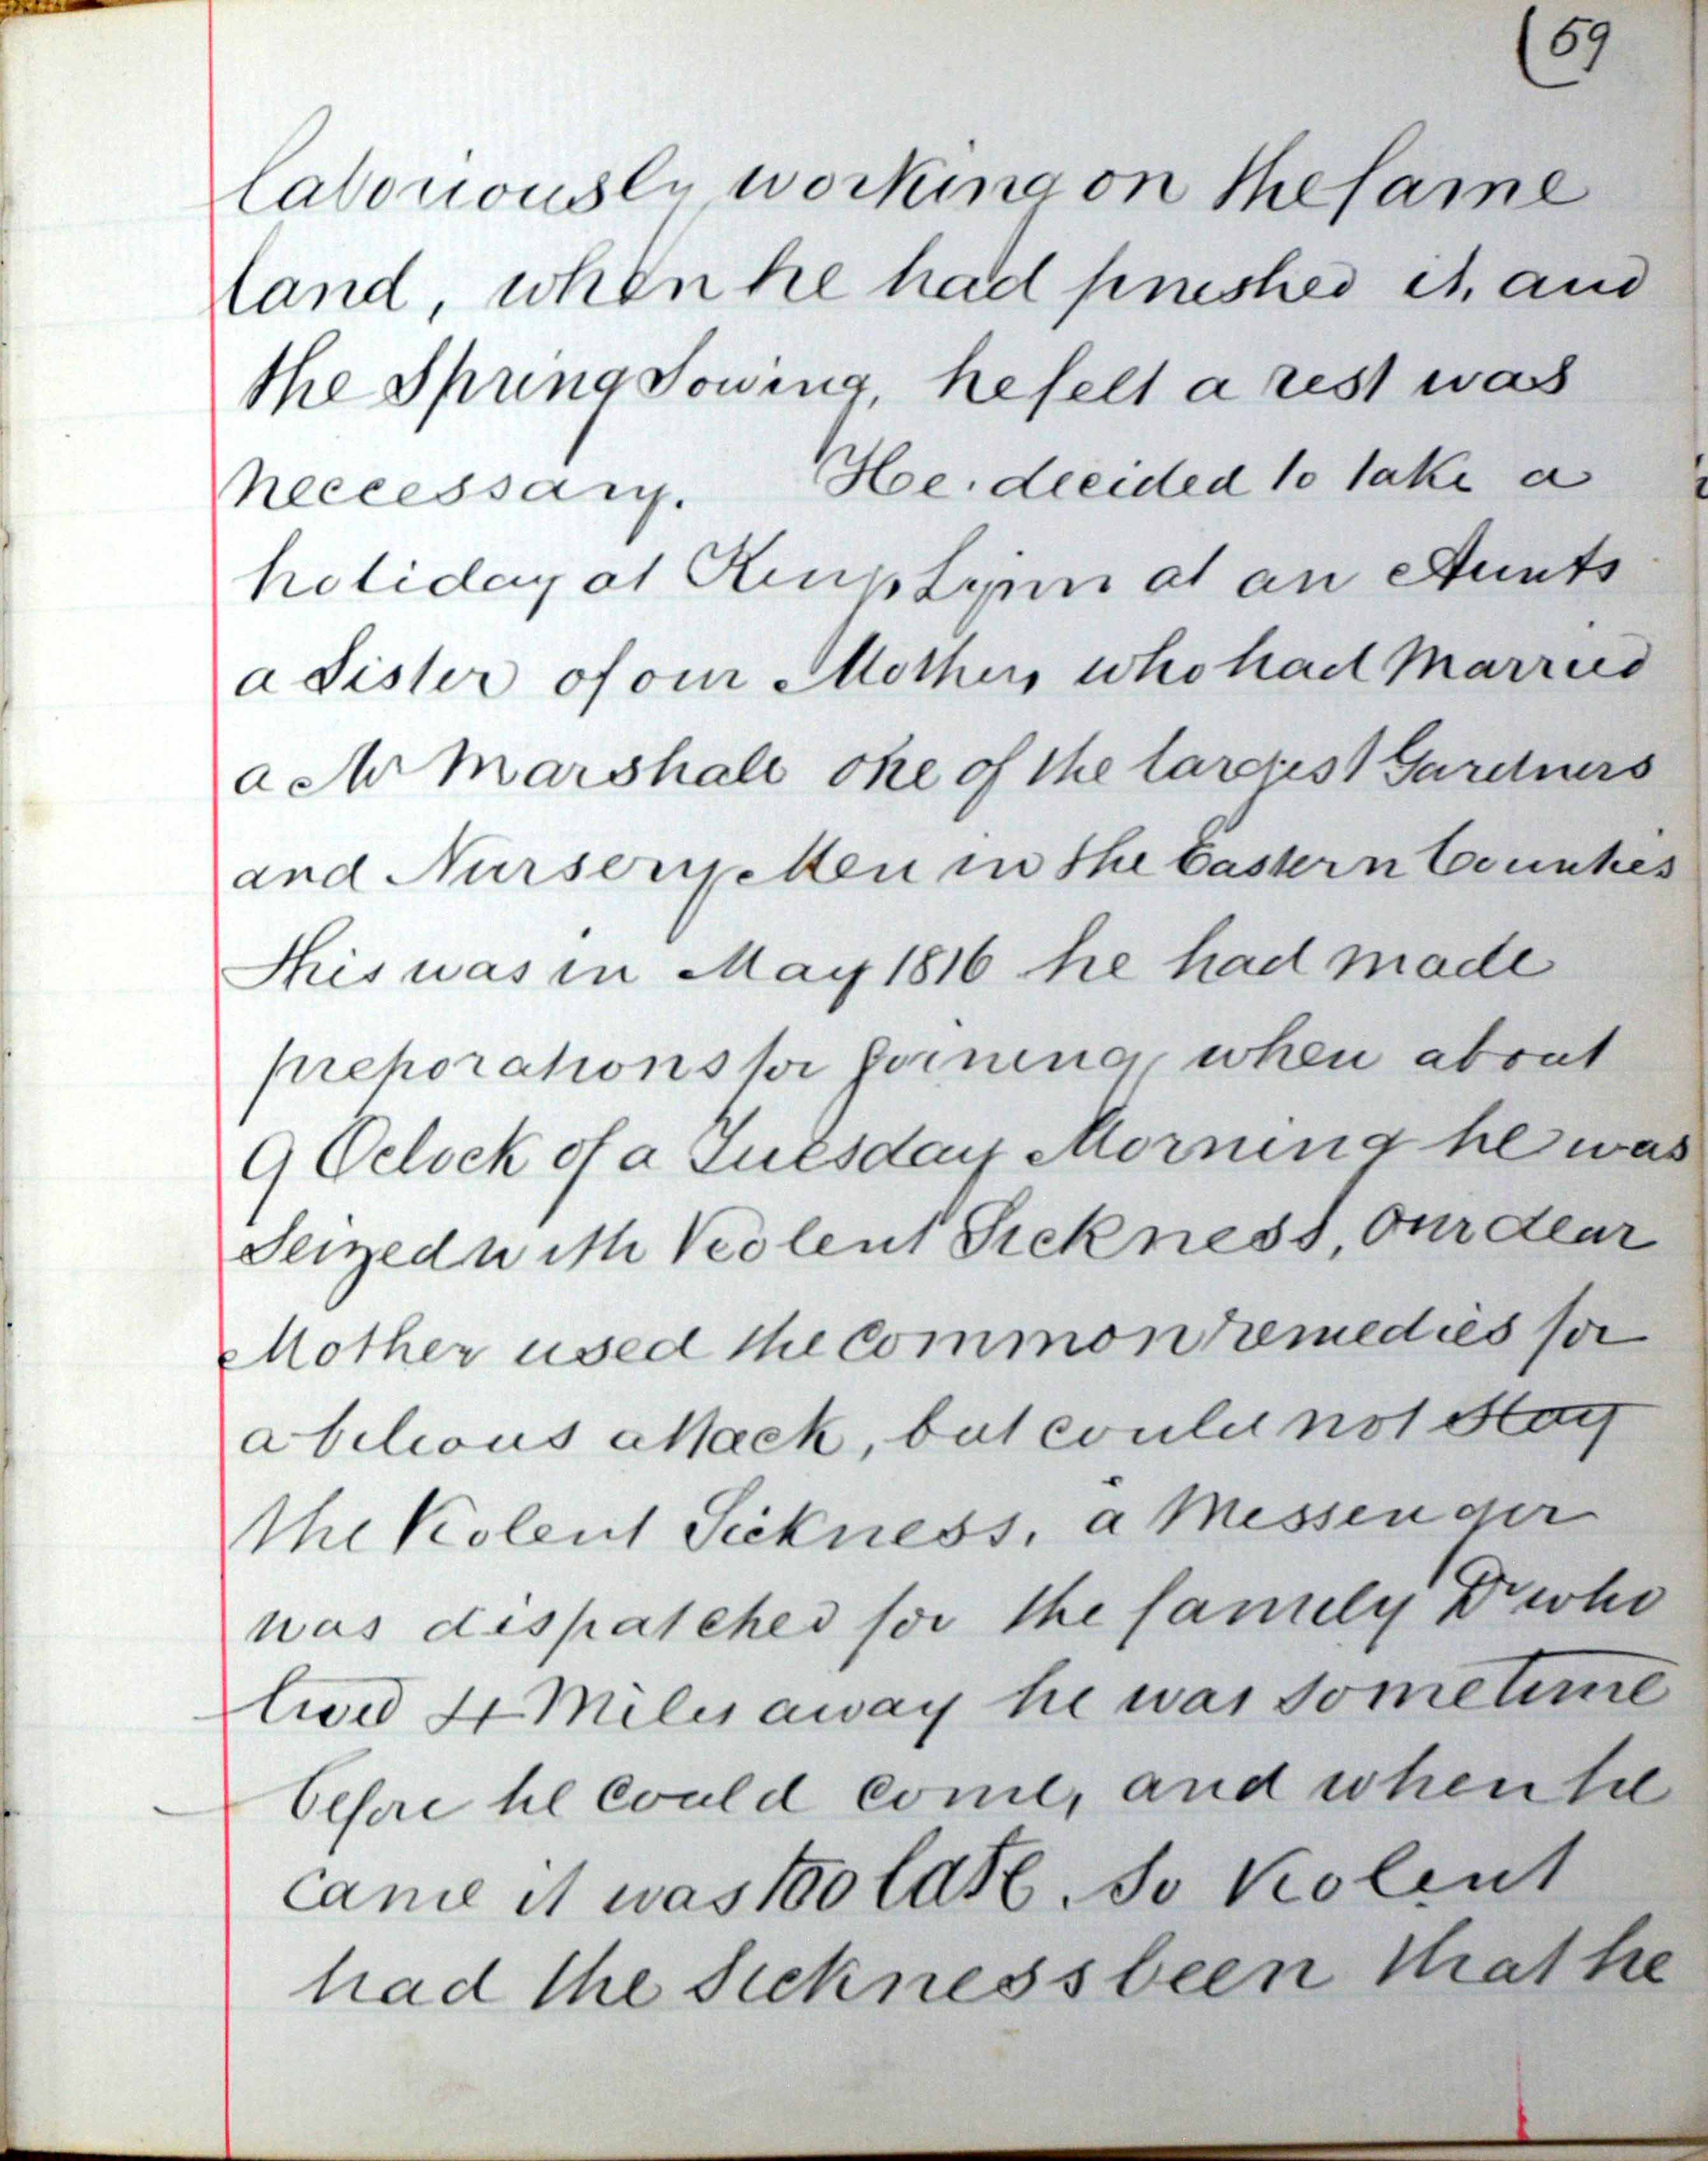 (59
laboriously working on the same
land, when he had finished it, and
the Spring Sowing, he felt a rest was
neccessary. He decided to take a
holiday at Kings Lynn at an Aunts
a Sister of our Mothers, who had Married
a Mr Marshall one of the largest Gardners
and Nursery Men in the Eastern Counties
this was in May 1816 he had made
preporations for going, when about
9 Oclock of a Tuesday Morning he was
Seized with Violent Sickness, our dear
Mother used the common remedies for
a bilious attack, but could not stay
the Violent Sickness, a Messenger
was dispatched for the family Dr who
lived 4 Miles away he was sometime
before he could come, and when he
came it was too late. So Violent
had the Sickness been that he